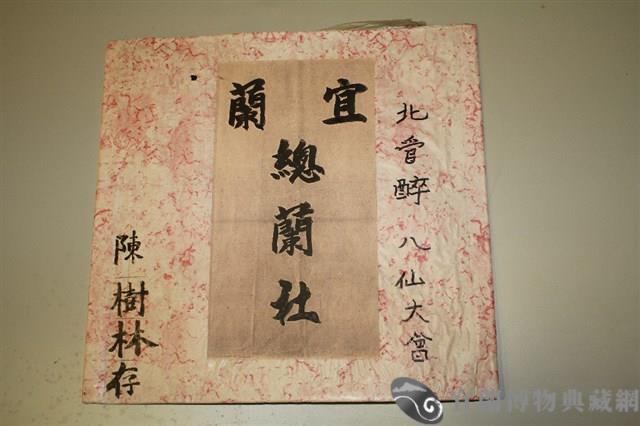 北管醉八仙大曾
宜蘭
總蘭社
陳樹林存
宜蘭博物典藏網